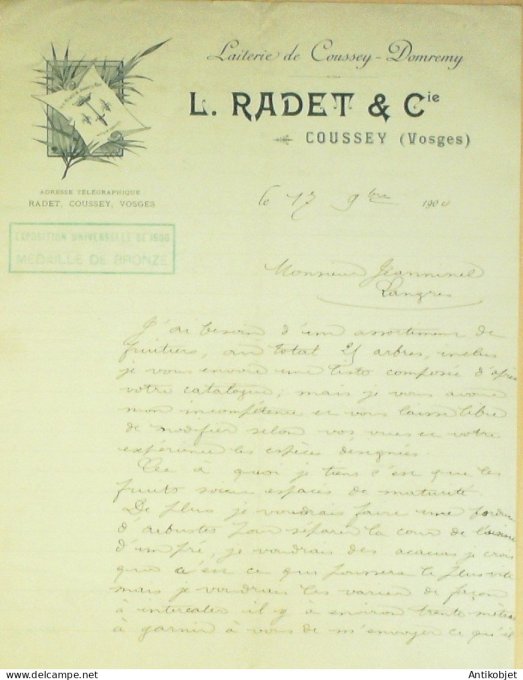 Laiterie de Coussey-Domremy
L. RADET & Cie
COUSSEY (Vosges)
ADRESSE TÉLÉGRAPHIQUE
RADET, COUSSEY, VOSGES
le 17 9bre 1900
EXPOSITION UNIVERSELLE DE 1900
MÉDAILLE DE BRONZE
Monsieur Jeanninel
Langres
J'ai besoin d'un assortiment de
fruitiers, au total 25 arbres, inclus
je vous envoie une liste composée d'après
votre catalogue; mais je vous avoue
mon incompétence et vous laisse libre
de modifier selon vos vues et votre
expérience les espèces désignées.
Ce à quoi je tiens c'est que les
fruits soient espacés de maturité.
De plus je voudrais faire une bordure
d'arbustes pour séparer la cour de l'usine
d'un pré, je voudrais des acacias je crois
que c'est ce qui poussera le plus vite
mais je voudrais les varier de façon
à intercaler il y a environ trente mètres
à garnir à vous de m'envoyer ce qu'il
Antikobjet